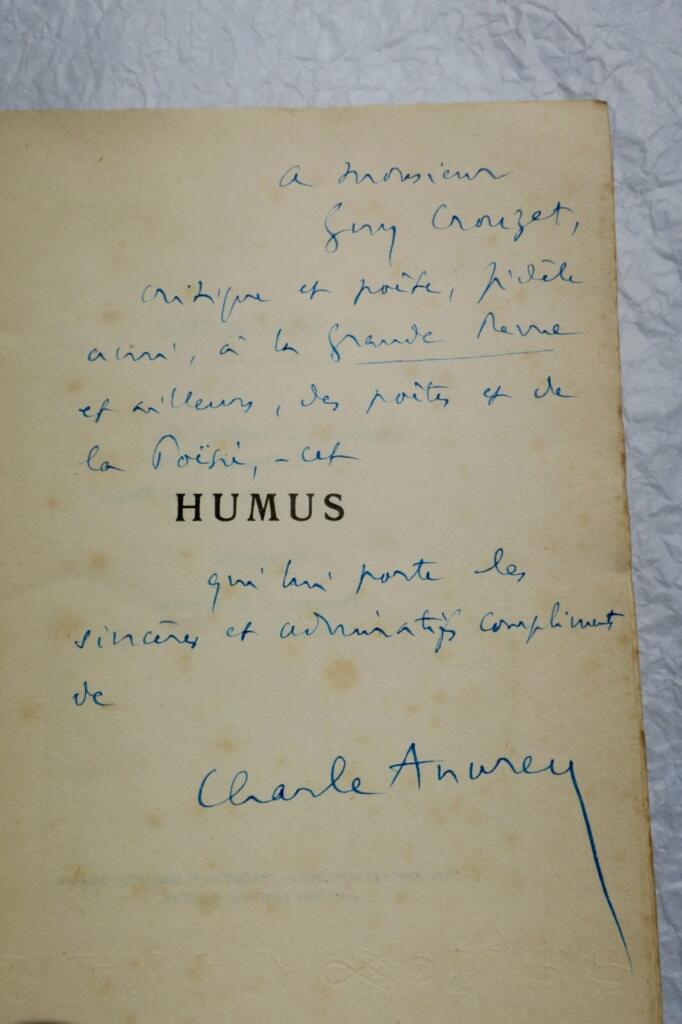 a Monsieur
Guy Crouzet,
critique et poète, fidèle
ami, à la Grande Revue
et ailleurs, des poètes et de
la Poësie, - cet
HUMUS
qui lui porte les
sincères et admiratifs compliments
de
Charle